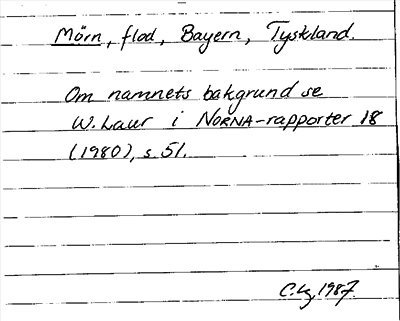 Mörn, flod, Bayern, Tyskland.
Om namnets bakgrund se
W. Laur i NORNA-rapporter 18
(1980), s. 51.
1987.